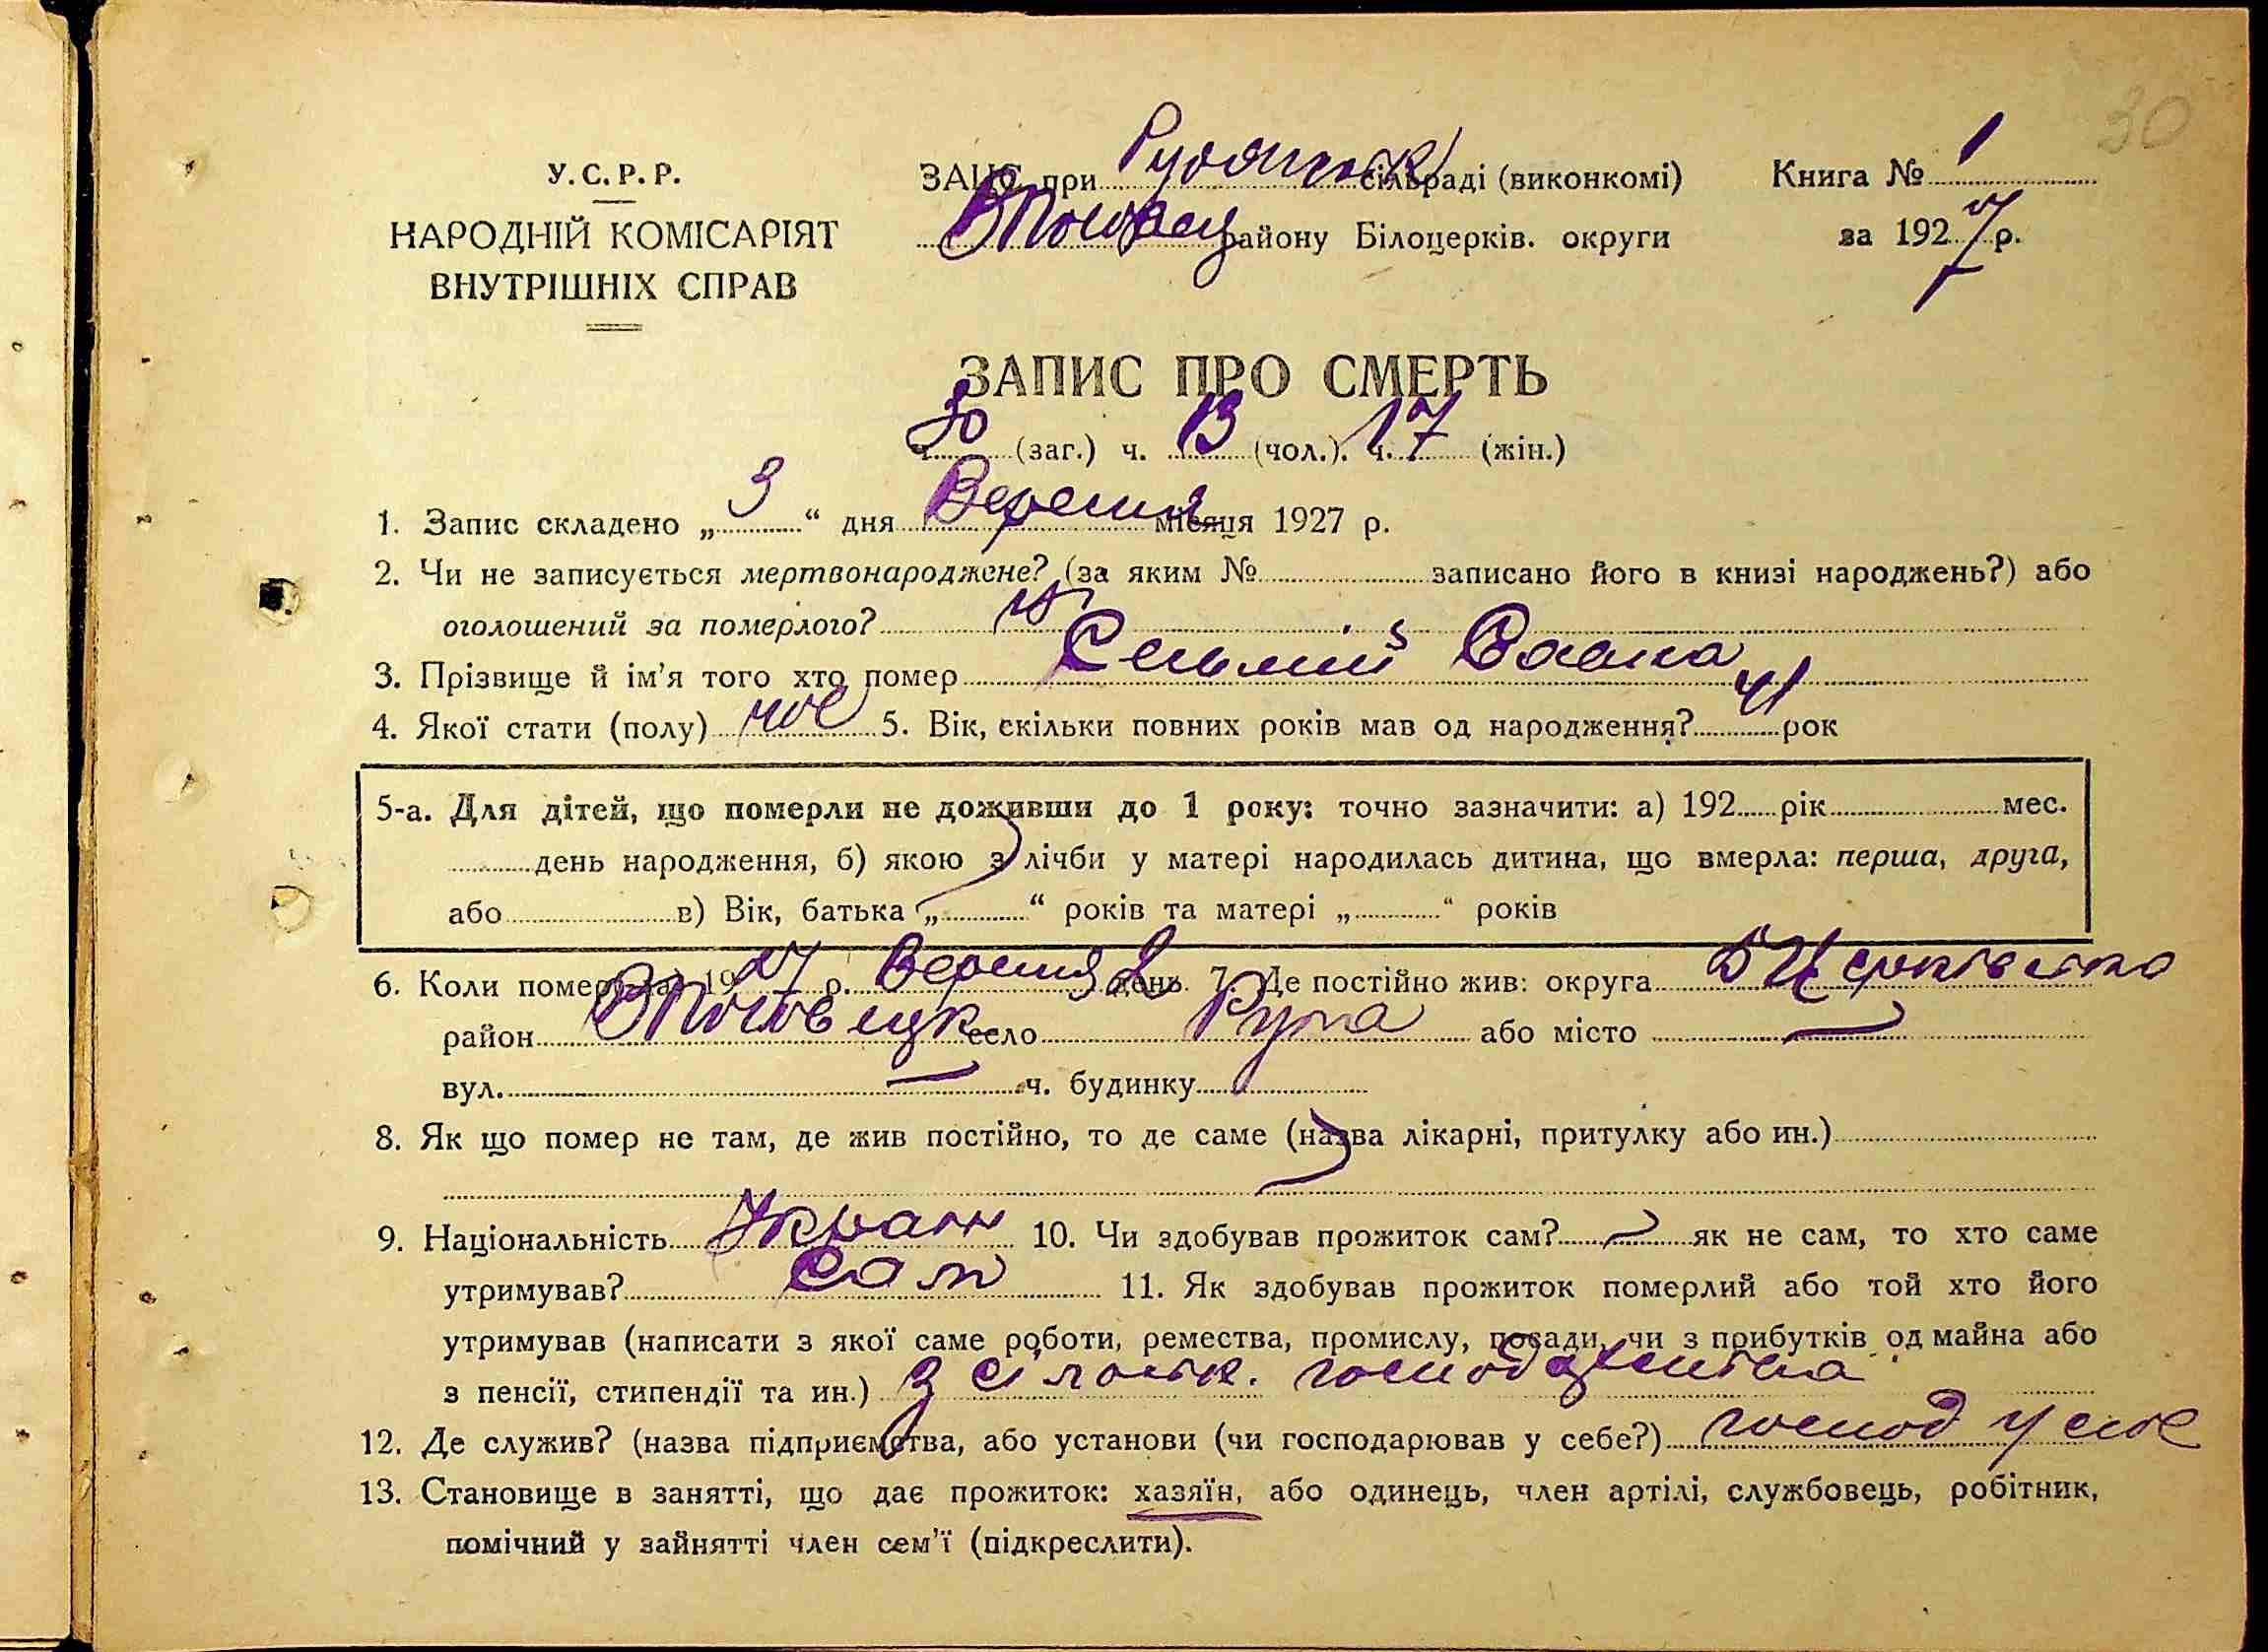 30
У.С.Р.Р.
НАРОДНІЙ КОМІСАРІЯТ
ВНУТРІШНІХ СПРАВ
ЗАПС при Рудянськ сільраді (виконкомі)
району Білоцерків. округи
Книга № 1
за 1927 р.
ЗАПИС ПРО СМЕРТЬ
30 (заг.) ч. 13 (чол.). ч. 17 (жін.)
1. Запис складено „ 3 “ дня Вересня місяця 1927 р.
2. Чи не записується мертвонароджене? (за яким № записано його в книзі народжень?) або
оголошений за померлого?
3. Прізвище й ім'я того хто помер Савка
4. Якої стати (полу) чол 5. Вік, скільки повних років мав од народження? 41 рок
5-а. Для дітей, що померли не доживши до 1 року: точно зазначити: а) 192 рік мес.
день народження, б) якою з лічби у матері народилась дитина, що вмерла: перша, друга,
або в) Вік, батька „ “ років та матері „ “ років
6. Коли помер(ла) 1927 р. Вересня 2 день 7. Де постійно жив: округа БЦерківська
район село Руда або місто —
вул. — ч. будинку
8. Як що помер не там, де жив постійно, то де саме (назва лікарні, притулку або ин.)
9. Національність Україн 10. Чи здобував прожиток сам? як не сам, то хто саме
утримував? Сам 11. Як здобував прожиток померлий або той хто його
утримував (написати з якої саме роботи, ремества, промислу, посади, чи з прибутків од майна або
з пенсії, стипендії та ин.) з сільськ. господарства
12. Де служив? (назва підприємства, або установи (чи господарював у себе?) господ у себе
13. Становище в занятті, що дає прожиток: хазяїн, або одинець, член артілі, службовець, робітник,
помічний у зайнятті член сем'ї (підкреслити).